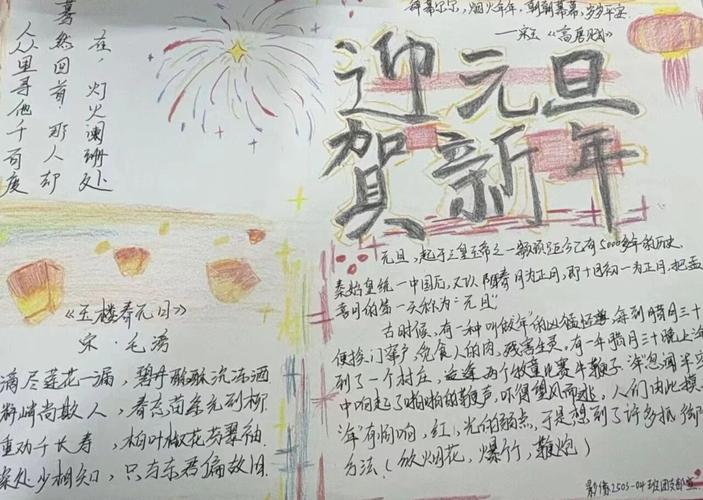 众里寻他千百度
蓦然回首 那人却
在，灯火阑珊处
尔尔，烟火年年，朝朝暮暮，岁岁平安
—宋玉《高唐赋》
迎元旦
贺新年
《玉楼春元日》
宋·毛滂
滴尽莲花一漏，碧井酴酥沉冻酒
料峭尚欺人，春态苗条先到柳
重劝千长寿，柏叶椒花芬翠袖
深处少相知，只与东君偏故旧
元旦，起于三皇五帝之一颛顼距今已有5000多年的历史
秦始皇统一中国后，又以阳春月为正月，即十月初一为正月，把孟
春月的第一天称为"元旦"
古时候，有一种叫做"年"的凶猛怪兽，每到腊月三十
便挨门窜户，觅食人的肉，残害生灵，有一年腊月三十晚上
到了一个村庄，这逢两个牧童比赛牛鞭子，"年"忽闻半空
中响起了啪啪的鞭声，吓得望风而逃，人们由此摸
"年"有怕响，红，光的弱点，于是想到了许多抵御
方法（放烟花，爆竹，鞭炮）
影像2503-04班团支部宣